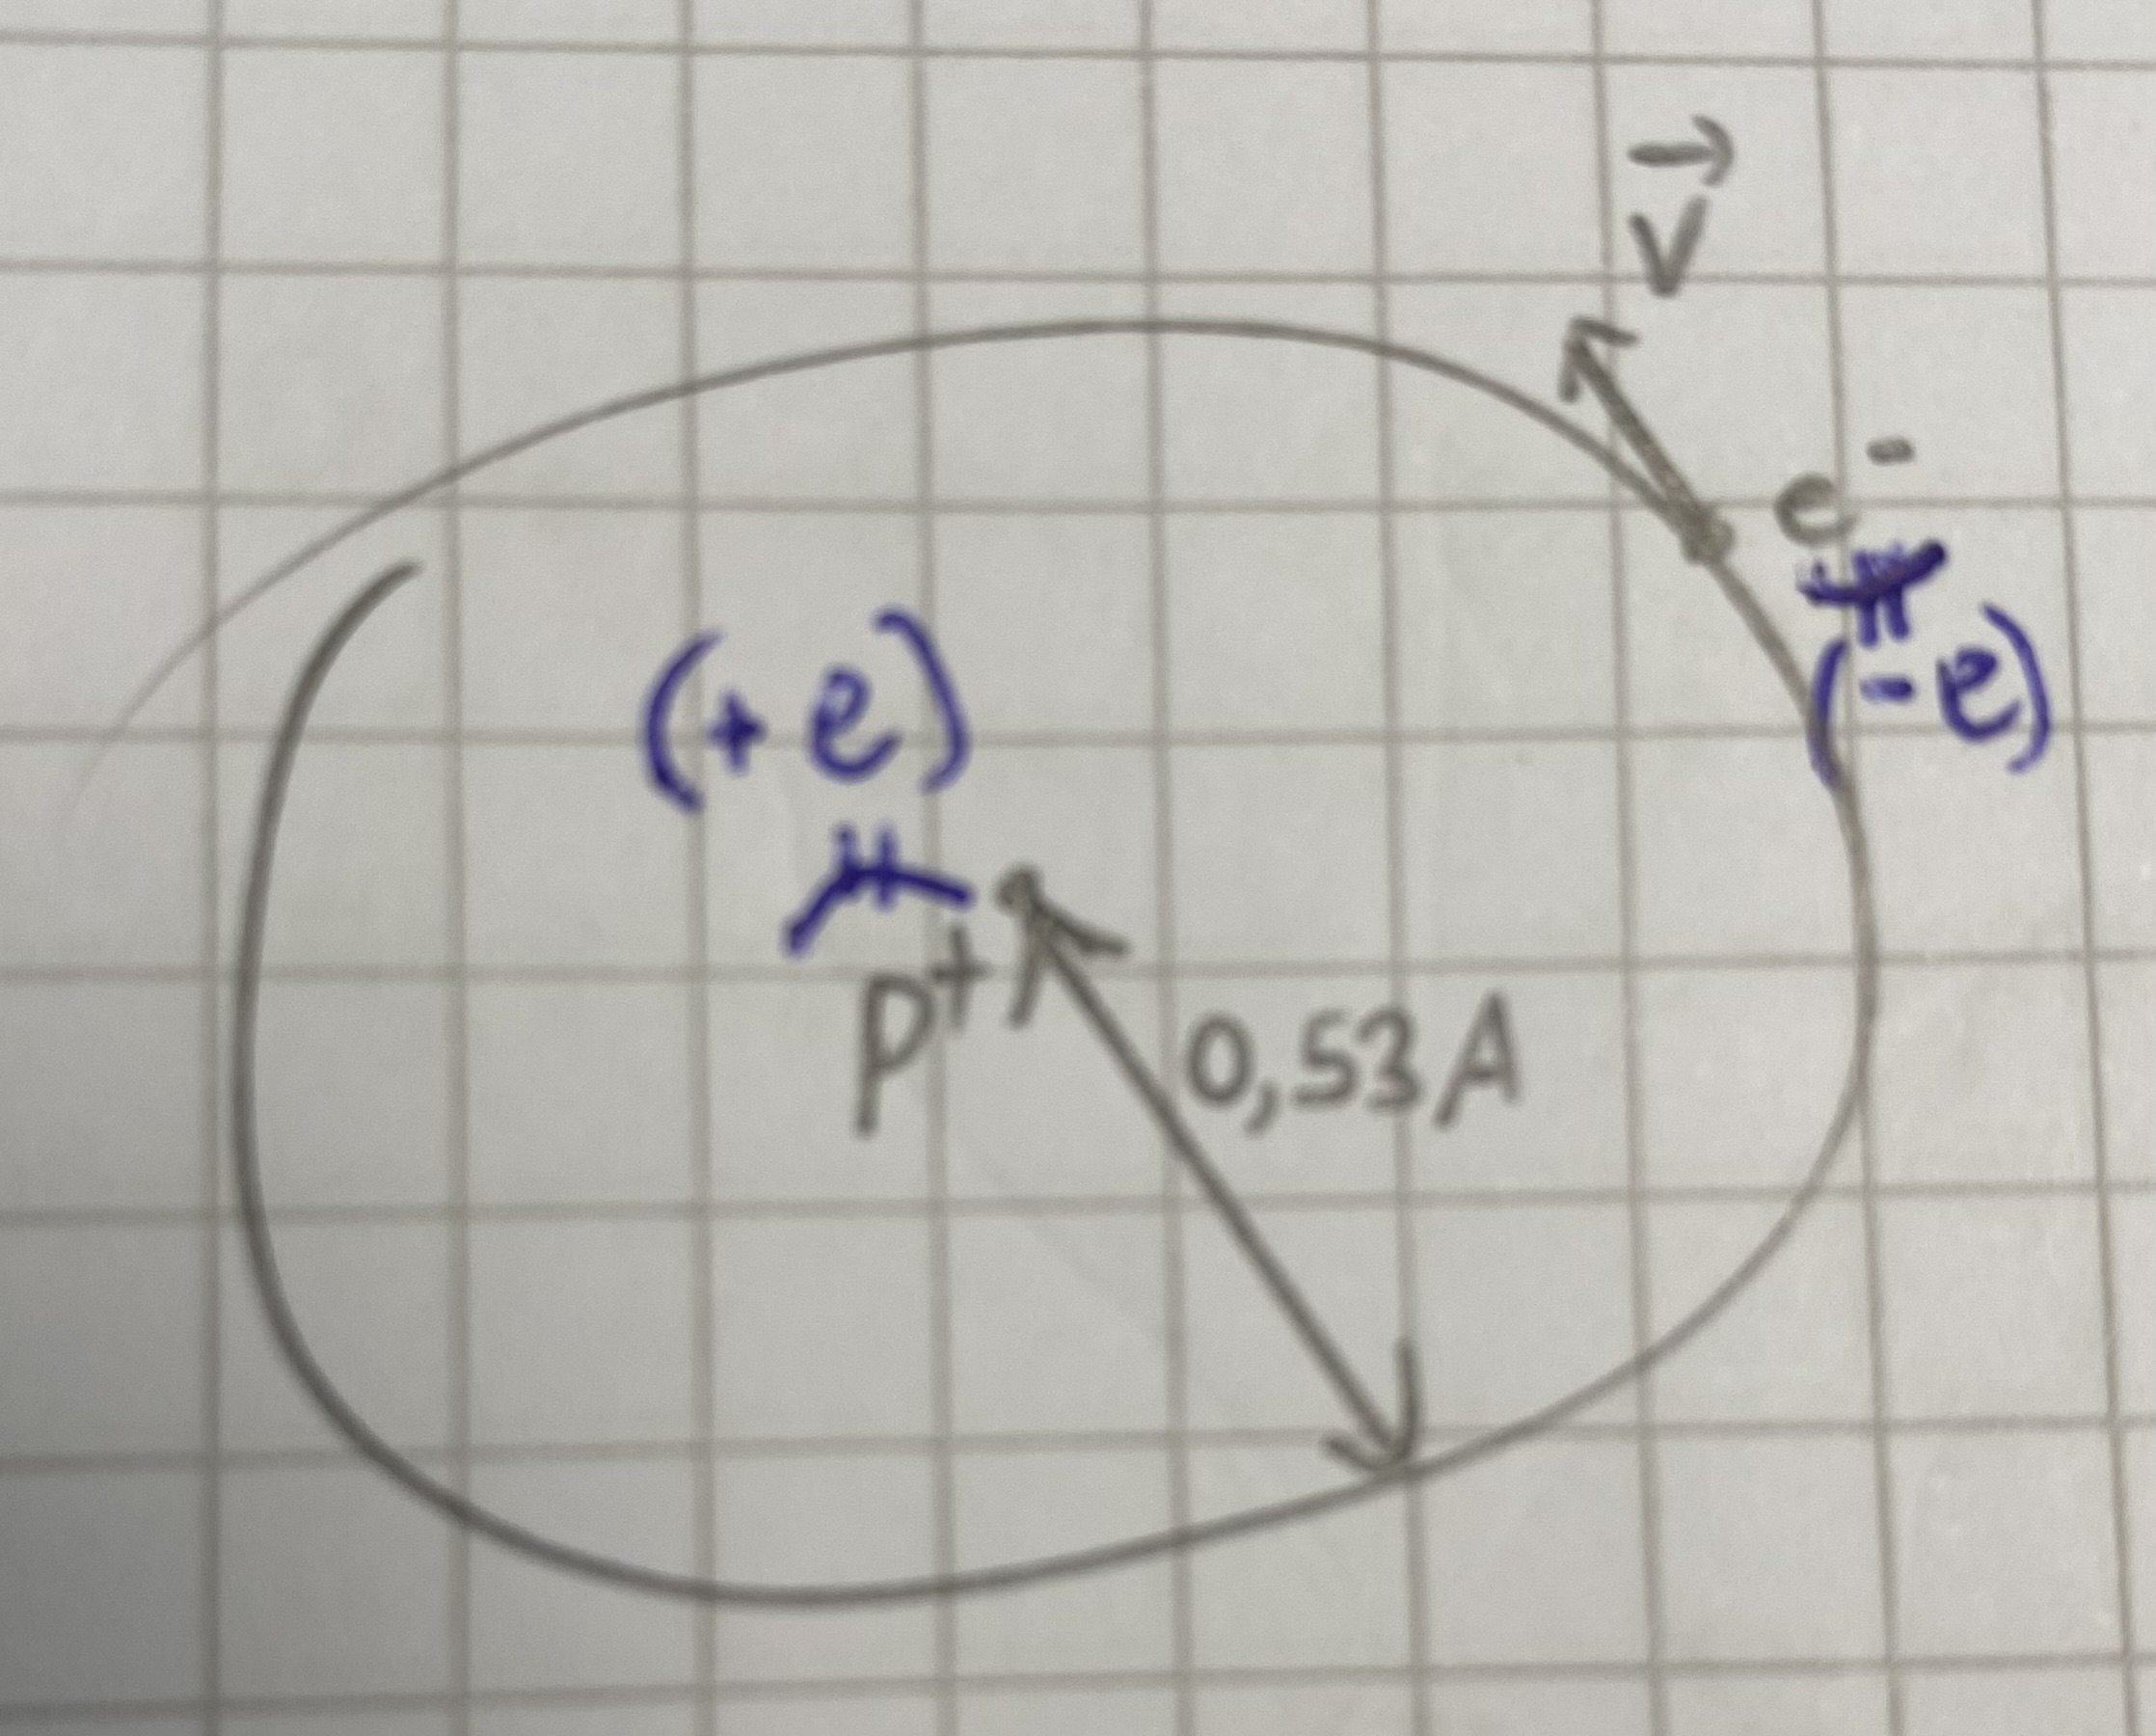 v⃗
e⁻
(-e)
(+e)
p⁺
0,53A